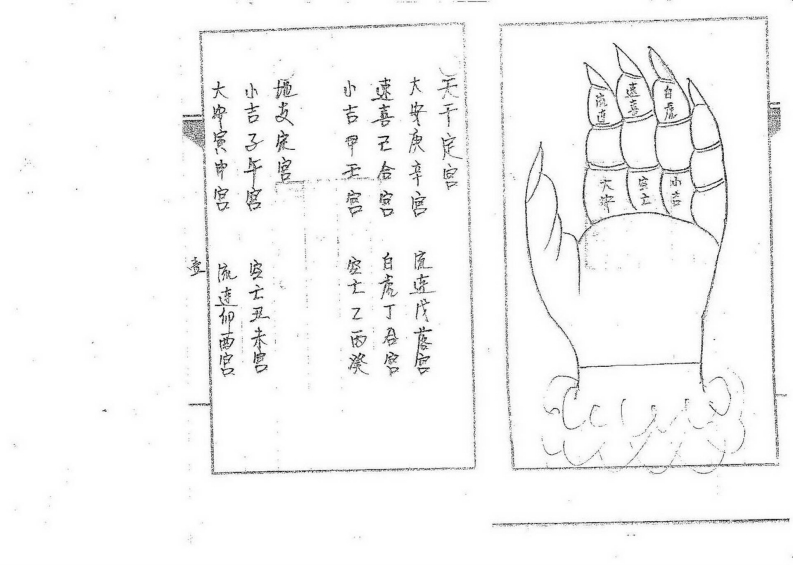 白虎
速喜
流連
小吉
空亡
大安
天干定宫
大安庚辛宫 流連戊落宫
速喜己合宫 白虎丁合宫
小吉甲壬宫 空亡乙丙癸
地支定宫
小吉子午宫 空亡丑未宫
大安寅申宫 流連卯酉宫
壹